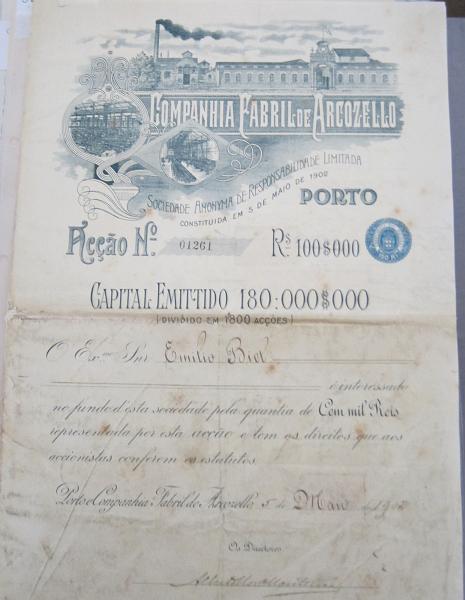 COMPANHIA FABRIL DE ARCOZELLO
SOCIEDADE ANONYMA DE RESPONSABILIDADE LIMITADA
CONSTITUIDA EM 5 DE MAIO DE 1902
PORTO
Acção Nº 01261 Rs 100$000
CAPITAL EMITTIDO 180:000$000
(DIVIDIDO EM 1800 ACÇÕES)
O Exmo Snr Emilio Biel
é interessado
no fundo d'esta sociedade pela quantia de Cem mil Reis
representada por esta acção e tem os direitos que aos
accionistas conferem os estatutos.
Porto e Companhia Fabril de Arcozello 5 de Maio de 1902
Os Directores